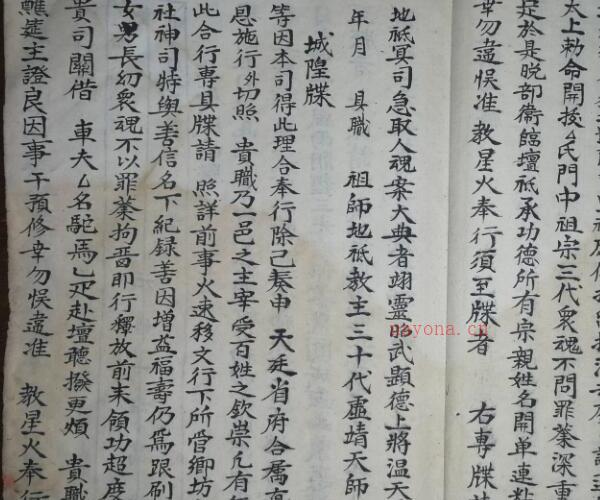 太上勅命開拔厶氏門中祖宗三代衆魂不問罪業深重
定於是晚部衛臨壇祗承功德所有宗親姓名開单連粘
幸勿違悞准 教星火奉行須至牒者 右專牒
地祗冥司急取人魂案大典者翊靈昭武顯德上將温天
年月 具職 祖師地祗教主三十代虛靖天師
城隍牒
等因本司得此理合奉行除已奏申 天廷省府合属
恩施行外切照 貴職乃一邑之主宰受百姓之欽崇凢有
此合行專具牒請 照詳前事火速移文行下所管鄉坊
社神司特與善信名下紀録善因增益福壽仍爲跟刷
女男長幼衆魂不以罪業拘畱即行釋放前来領功超度
貴司關借 車夫厶名駝馬乙疋赴壇聽撥更煩 貴職
醮筵主證良因事干預修幸勿悞違准 教星火奉行
nayona.cn